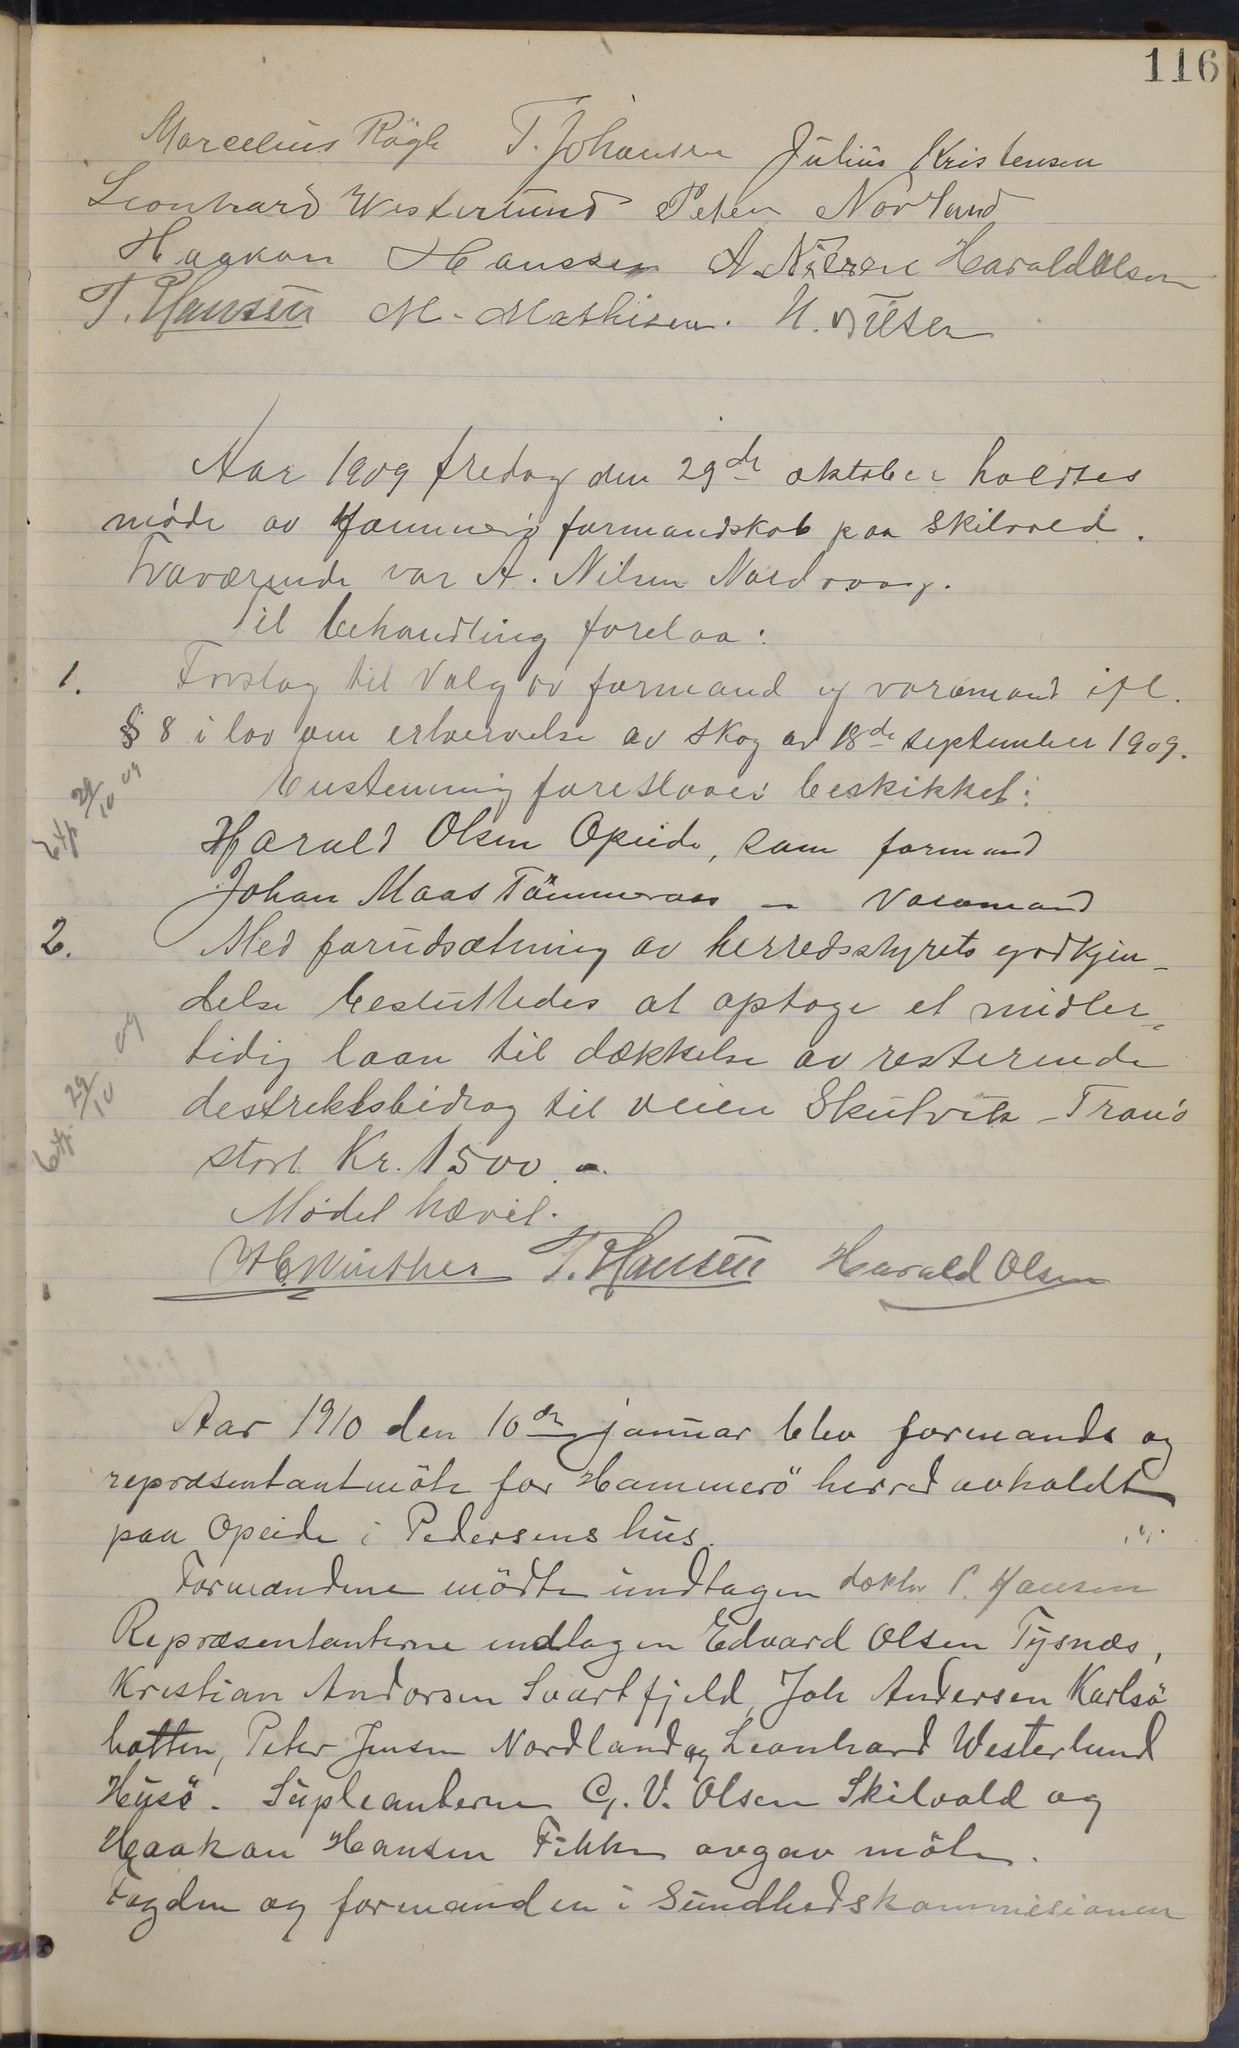 116
Marcelius Rögh T. Johansen Julius Kristensen
Leonhard Westerlund Peter Norland
Haakon Hanssen A. Nilsen Harald Olsen
T. Hansen M. Mathisen. H. Nilsen
Aar 1909 fredag den 29de oktober holdtes
møde av Hammerø formandskab paa Skilvold.
Fraværende var A. Nilsen Nordvaag.
Til behandling forelaa:
1. Forslag til Valg av formand og varamand ifl.
§ 8 i lov om erhvervelse av skog av 18de september 1909.
Enstemmig foreslaaes beskikket:
29/10 09
Harald Olsen Opeide, som formand
Johan Maas Tömmeraas — Varamand
2. Med forudsætning av herredsstyrets godkjen-
delse besluttedes at optage et midler-
tidig laan til dækkelse av resterende
29/10 09
destriktsbidrag til veien Skutvik - Tranø
stort Kr. 1500.-
Mødet hævet.
H. Winther T. Hansen Harald Olsen
Aar 1910 den 10de januar blev formands og
repræsentantmöte for Hammerö herred avholdt
paa Opeide i Pedersens hus.
Formændene mödte undtagen doktor P. Hansen
Repræsentanterne undtagen Edvard Olsen Tysnæs,
Kristian Andorsen Svartfjeld, Joh Andersen Karlsö
hatten, Peter Jensen Nordland og Leonhard Westerlund
Husö. Supleanterne G. V. Olsen Skilvold og
Haakon Hansen Fikke avgav möte.
Fogden og formanden i Sundhedskommisionen